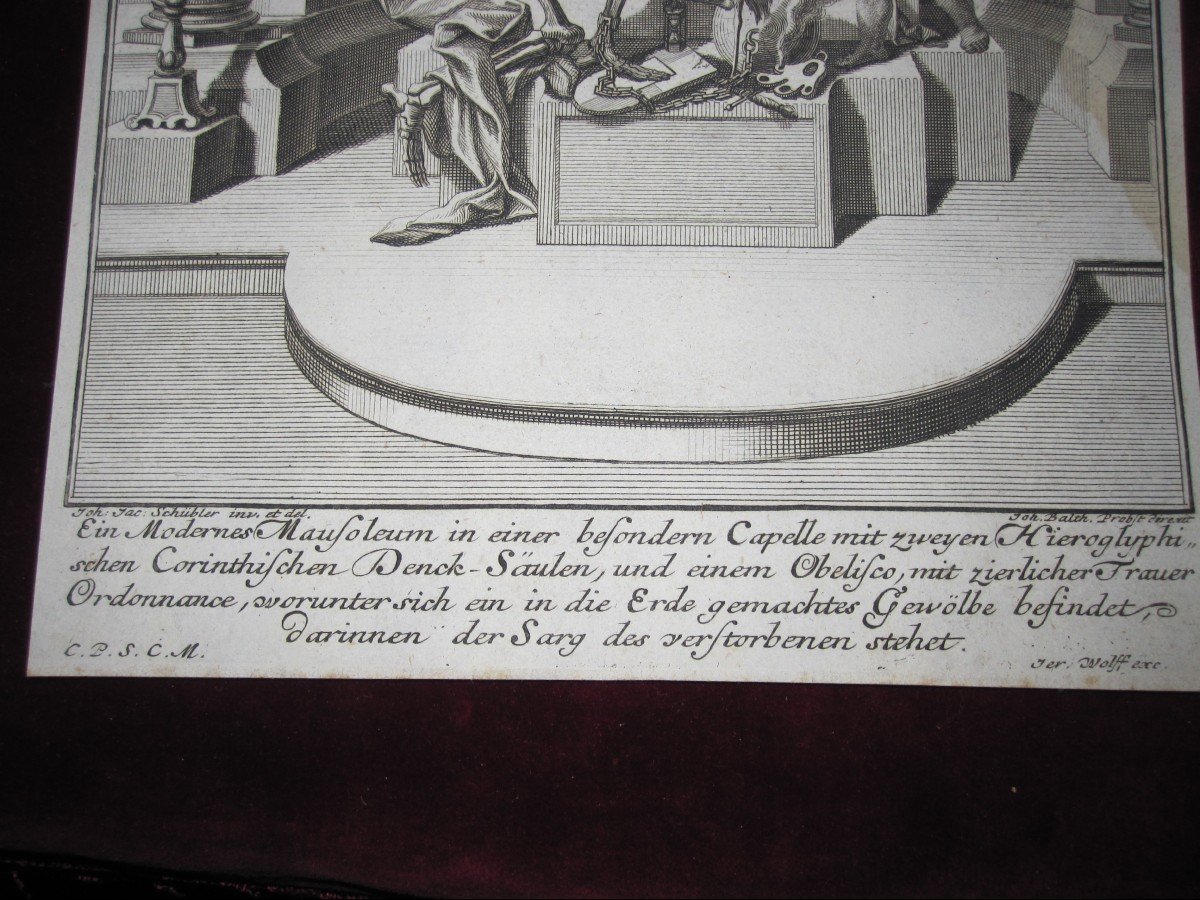 Joh: Jac: Schübler inv. et del.
Joh. Balth. Probst direxit
Ein Modernes Mausoleum in einer besondern Capelle mit zweyen Hieroglyphi„
schen Corinthischen Denck-Säulen, und einem Obelisco, mit zierlicher Trauer
Ordonnance, worunter sich ein in die Erde gemachtes Gewölbe befindet,
darinnen der Sarg des verstorbenen stehet.
C. P. S. C. M.
Jer. Wolff exc.